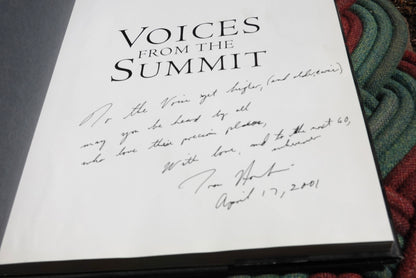 VOICES
FROM THE
SUMMIT
To the Voice yet higher, (and older, wiser)
may you be heard by all
who love these precious places,
With love, and to the next 60,
wherever
Tom
April 17, 2001